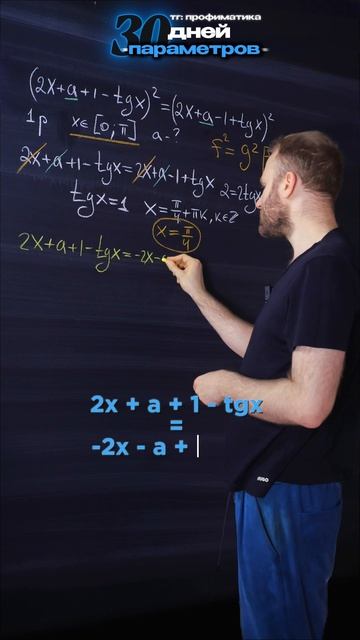 тг: профиматика
30 дней
параметров
(2x+a+1-tgx)²=(2x+a-1+tgx)²
1р x∈[0,π] a-? f²=g²
2x+a+1-tgx=2x+a-1+tgx 2=2tgx
tgx=1 x=π/4+πk, k∈ℤ
x=π/4
2x+a+1-tgx=-2x-
2x + a + 1 - tgx
=
-2x - a +